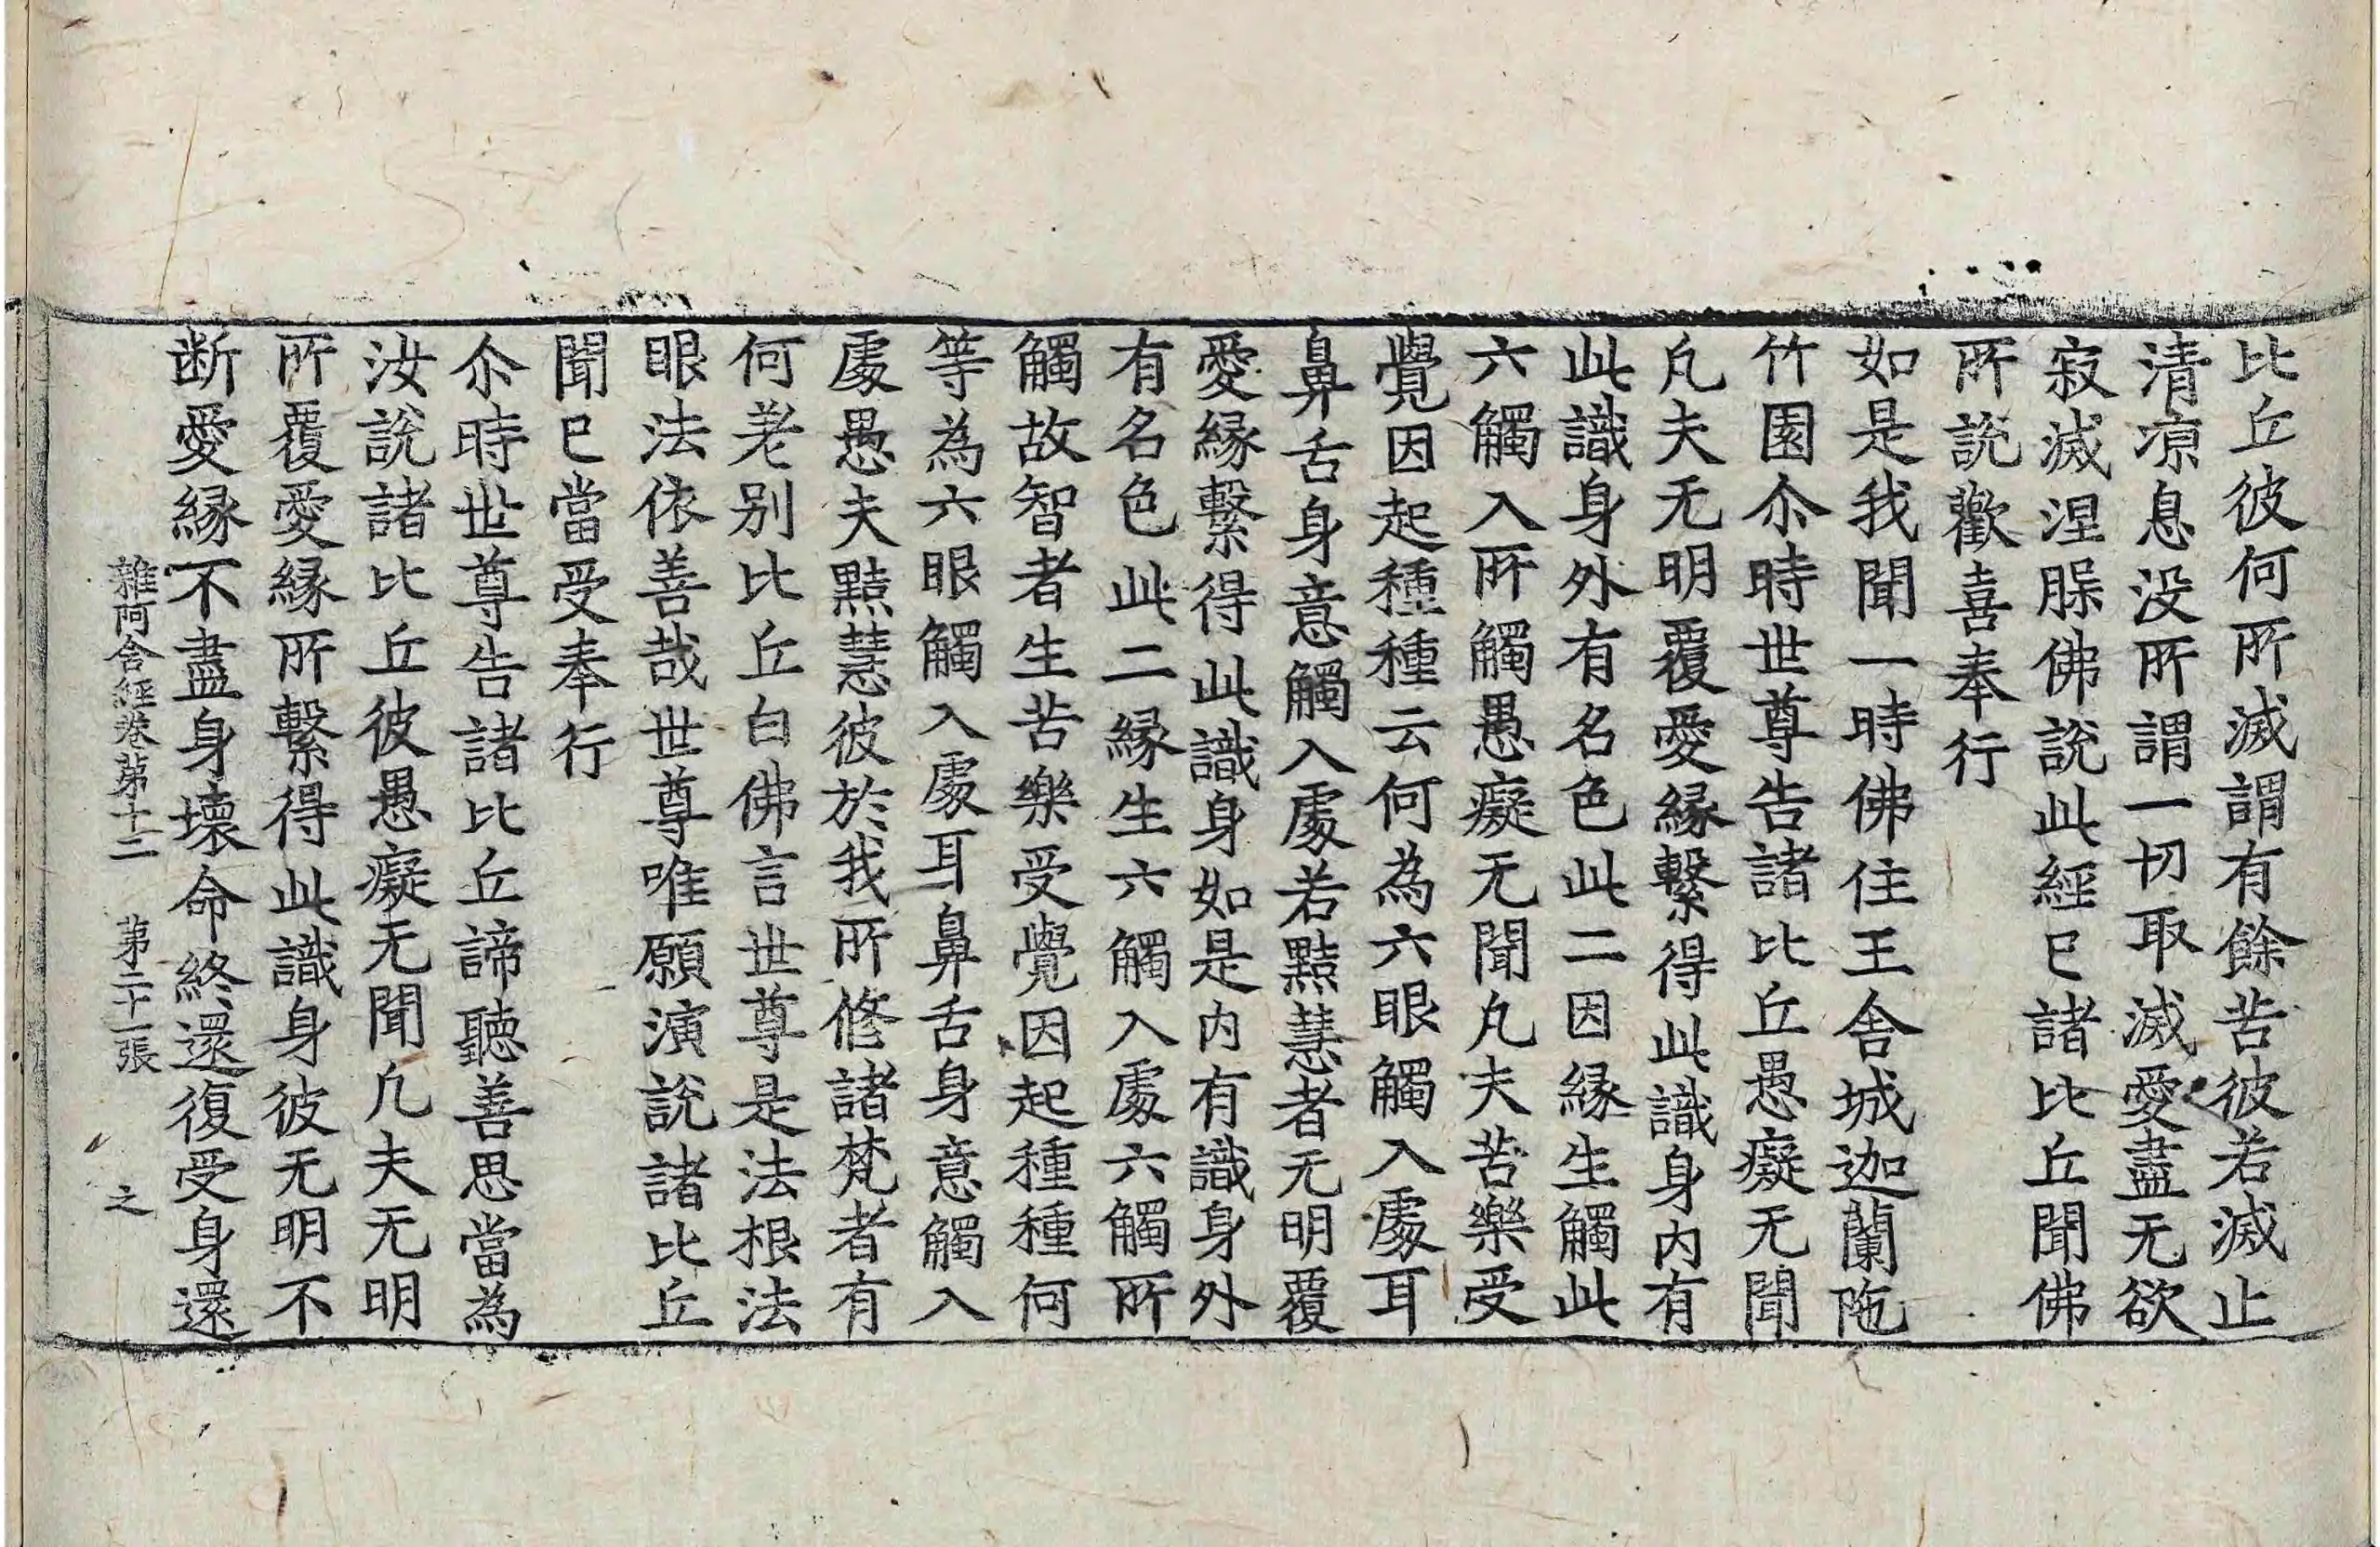 比丘彼何所滅謂有餘苦彼若滅止
清凉息没所謂一切取滅愛盡无欲
寂滅涅槃佛說此經已諸比丘聞佛
所說歡喜奉行
如是我聞一時佛住王舍城迦蘭陁
竹園尒時世尊告諸比丘愚癡无聞
凡夫无明覆愛緣繫得此識身內有
此識身外有名色此二因緣生觸此
六觸入所觸愚癡无聞凡夫苦樂受
覺因起種種云何為六眼觸入處耳
鼻舌身意觸入處若黠慧者无明覆
愛緣繫得此識身如是內有識身外
有名色此二緣生六觸入處六觸所
觸故智者生苦樂受覺因起種種何
等為六眼觸入處耳鼻舌身意觸入
處愚夫黠慧彼於我所修諸梵者有
何差別比丘白佛言世尊是法根法
眼法依善哉世尊唯願演說諸比丘
聞已當受奉行
尒時世尊告諸比丘諦聽善思當為
汝說諸比丘彼愚癡无聞凡夫无明
所覆愛緣所繫得此識身彼无明不
断愛緣不盡身壞命終還復受身還
雜阿含經卷第十二 第二十一張 之